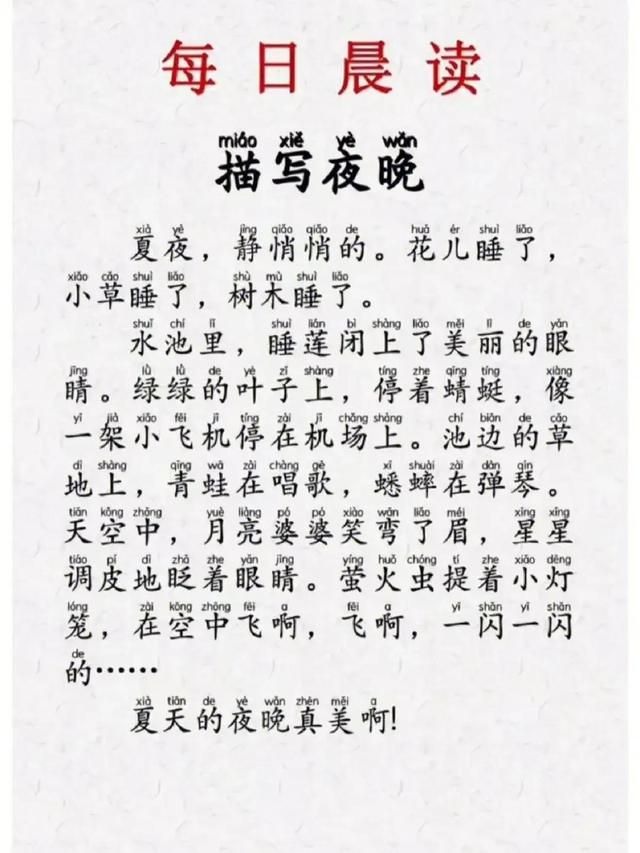 每日晨读
miáo xiě yè wǎn
描写夜晚
xià yè jìng qiǎo qiǎo de huā ér shuì liǎo
夏夜，静悄悄的。花儿睡了，
xiǎo cǎo shuì liǎo shù mù shuì liǎo
小草睡了，树木睡了。
shuǐ chí lǐ shuì lián bì shàng liǎo měi lì de yǎn
水池里，睡莲闭上了美丽的眼
jīng lǜ lǜ de yè zǐ shàng tíng zhe qīng tíng xiàng
睛。绿绿的叶子上，停着蜻蜓，像
yī jià xiǎo fēi jī tíng zài jī chǎng shàng chí biān de cǎo
一架小飞机停在机场上。池边的草
dì shàng qīng wā zài chàng gē xī shuài zài dàn qín
地上，青蛙在唱歌，蟋蟀在弹琴。
tiān kōng zhōng yuè liàng pó pó xiào wān liǎo méi xīng xīng
天空中，月亮婆婆笑弯了眉，星星
tiáo pí dì zhǎ zhe yǎn jīng yíng huǒ chóng tí zhe xiǎo dēng
调皮地眨着眼睛。萤火虫提着小灯
lóng zài kōng zhōng fēi a fēi a yī shǎn yī shǎn
笼，在空中飞啊，飞啊，一闪一闪
de
的……
xià tiān de yè wǎn zhēn měi a
夏天的夜晚真美啊!